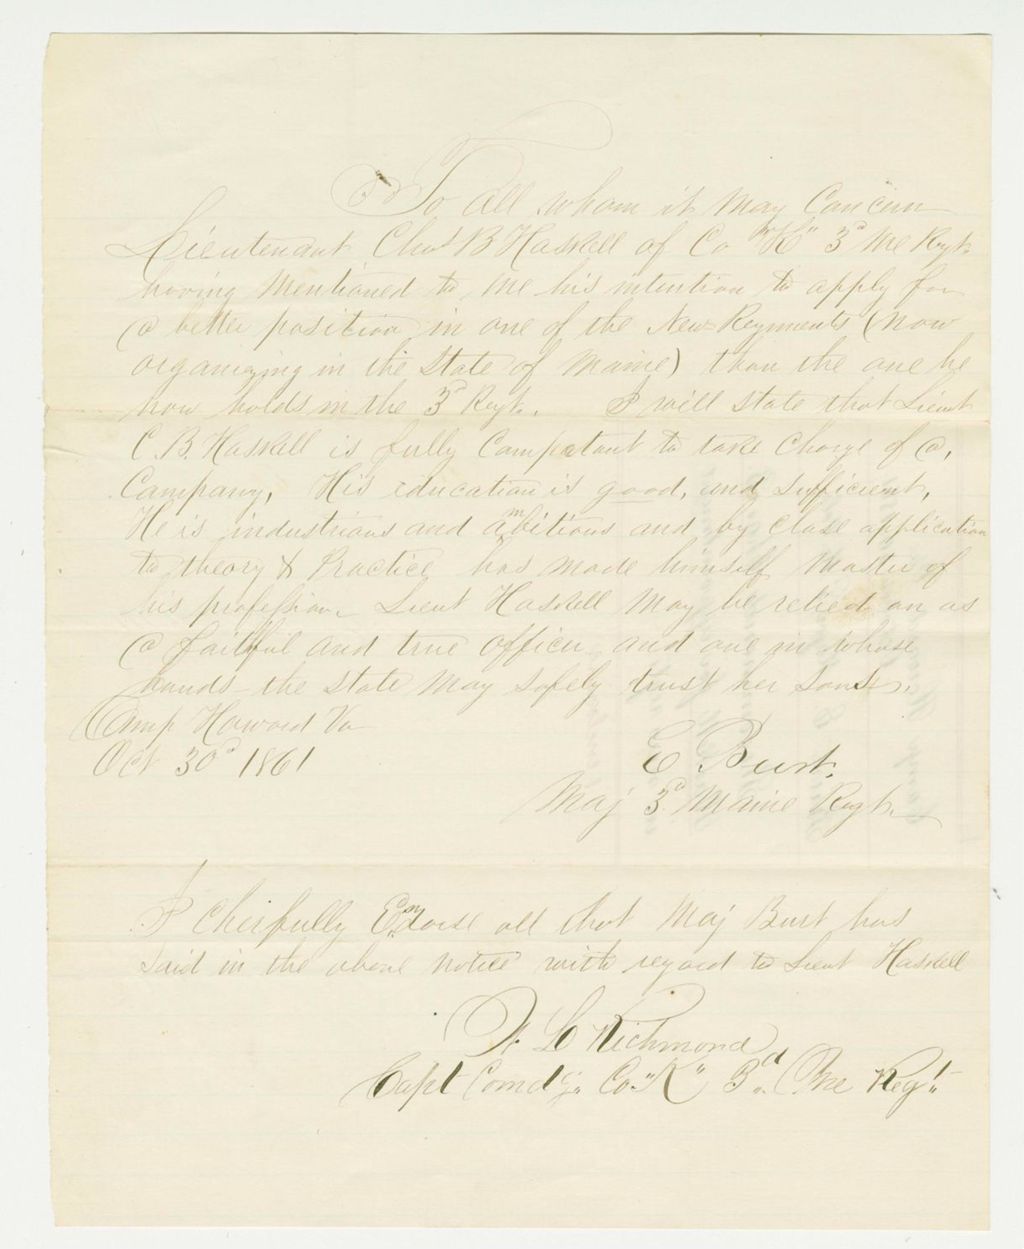 To all whom it may Concern
Lieutenant Chas B Haskell of Co "K" 3d Me Regt.
having mentioned to me his intention to apply for
a better position in one of the New Regiments (now
organizing in the State of Maine) than the one he
now holds in the 3d Regt. I will state that Lieut
C. B. Haskell is fully Competant to take Charge of a,
Company, His education is good, and sufficient,
He is industrious and ambitious and by Close application
to theory & Practice has made himself Master of
his profession. Lieut Haskell may be relied on as
a faithful and true officer and one in whose
hands the State may safely trust her Sons.
Camp Howard Va
Oct 30d 1861
E Burt.
Maj 3d Maine Regt.
I Cheifully Endorse all that Maj Burt has
said in the above notice with regard to Lieut Haskell
L Richmond
Capt Comdg. Co. "K" 3d. Me Regt.